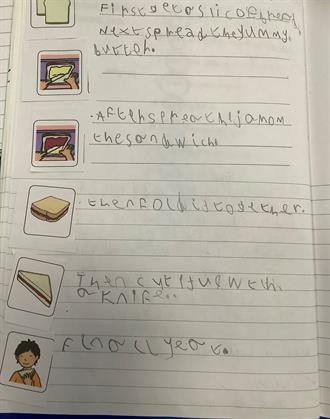 First get a slic of bread,
Next spread the yummy,
butter.
.After spreath jam on
the sandwich
.then fold it together.
Then cut it up with
a knife..
Finally eat.